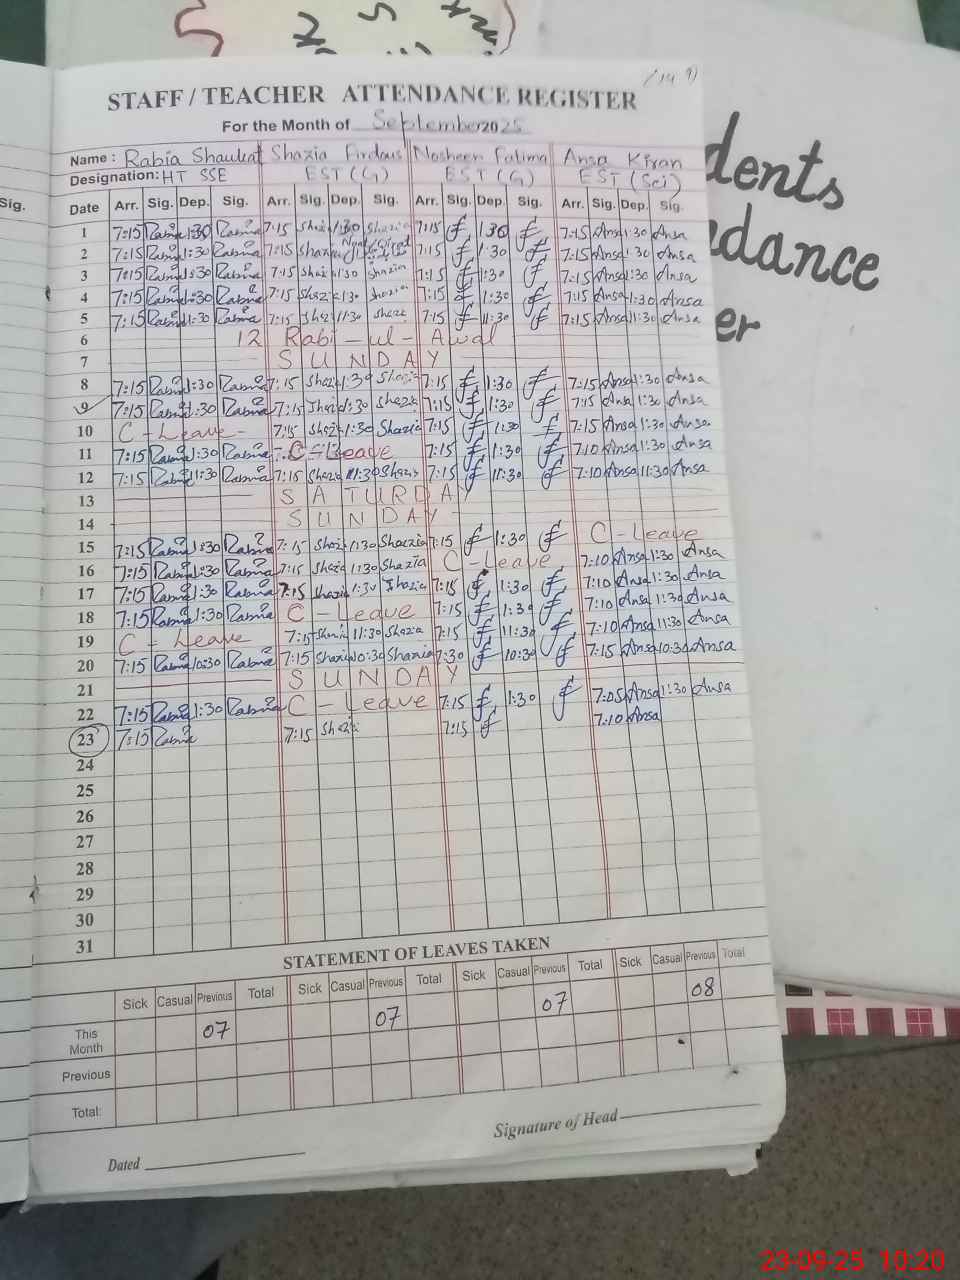 STAFF / TEACHER ATTENDANCE REGISTER
For the Month of September 2025
Name : Rabia Shaukat Shazia Firdous Nosheen Fatima Ansa Kiran
Designation: HT SSE EST (G) EST (G) EST (Sci)
Sig.
Date Arr. Sig. Dep. Sig. Arr. Sig. Dep. Sig. Arr. Sig. Dep. Sig. Arr. Sig. Dep. Sig.
1 7:15 Rabia 1:30 Rabia 7:15 Shazia 1:30 Shazia 7:15 1:30 7:15 Ansa 1:30 Ansa
2 7:15 Rabia 1:30 Rabia 7:15 Shazia 7:15 1:30 7:15 Ansa 1:30 Ansa
3 7:15 Rabia 1:30 Rabia 7:15 Shazia 1:30 Shazia 7:15 1:30 7:15 Ansa 1:30 Ansa
4 7:15 Rabia 1:30 Rabia 7:15 Shazia 1:30 Shazia 7:15 1:30 7:15 Ansa 1:30 Ansa
5 7:15 Rabia 11:30 Rabia 7:15 Shazia 11:30 Shazia 7:15 11:30 7:15 Ansa 11:30 Ansa
6 12 Rabi-ul-Awal
7 SUNDAY
8 7:15 Rabia 1:30 Rabia 7:15 Shazia 1:30 Shazia 7:15 1:30 7:15 Ansa 1:30 Ansa
9 7:15 Rabia 1:30 Rabia 7:15 Shazia 1:30 Shazia 7:15 1:30 7:15 Ansa 1:30 Ansa
10 C-Leave- 7:15 Shazia 1:30 Shazia 7:15 1:30 7:15 Ansa 1:30 Ansa
11 7:15 Rabia 1:30 Rabia C-Leave 7:15 1:30 7:10 Ansa 1:30 Ansa
12 7:15 Rabia 11:30 Rabia 7:15 Shazia 11:30 Shazia 7:15 11:30 7:10 Ansa 11:30 Ansa
13 SATURDAY
14 SUNDAY
15 7:15 Rabia 1:30 Rabia 7:15 Shazia 1:30 Shazia 7:15 1:30 C-Leave
16 7:15 Rabia 1:30 Rabia 7:15 Shazia 1:30 Shazia C-Leave 7:10 Ansa 1:30 Ansa
17 7:15 Rabia 1:30 Rabia 7:15 Shazia 1:30 Shazia 7:15 1:30 7:10 Ansa 1:30 Ansa
18 7:15 Rabia 1:30 Rabia C-Leave 7:15 1:30 7:10 Ansa 1:30 Ansa
19 C-Leave 7:15 Shazia 11:30 Shazia 7:15 11:30 7:10 Ansa 11:30 Ansa
20 7:15 Rabia 10:30 Rabia 7:15 Shazia 10:30 Shazia 7:30 10:30 7:15 Ansa 10:30 Ansa
21 SUNDAY
22 7:15 Rabia 1:30 Rabia C-Leave 7:15 1:30 7:05 Ansa 1:30 Ansa
23 7:15 Rabia 7:15 Shazia 7:15 7:10 Ansa
24
25
26
27
28
29
30
31
STATEMENT OF LEAVES TAKEN
Sick Casual Previous Total Sick Casual Previous Total Sick Casual Previous Total Sick Casual Previous Total
This Month 07 07 07 08
Previous
Total:
Dated
Signature of Head
dents
dance
er
23-09-25 10:20